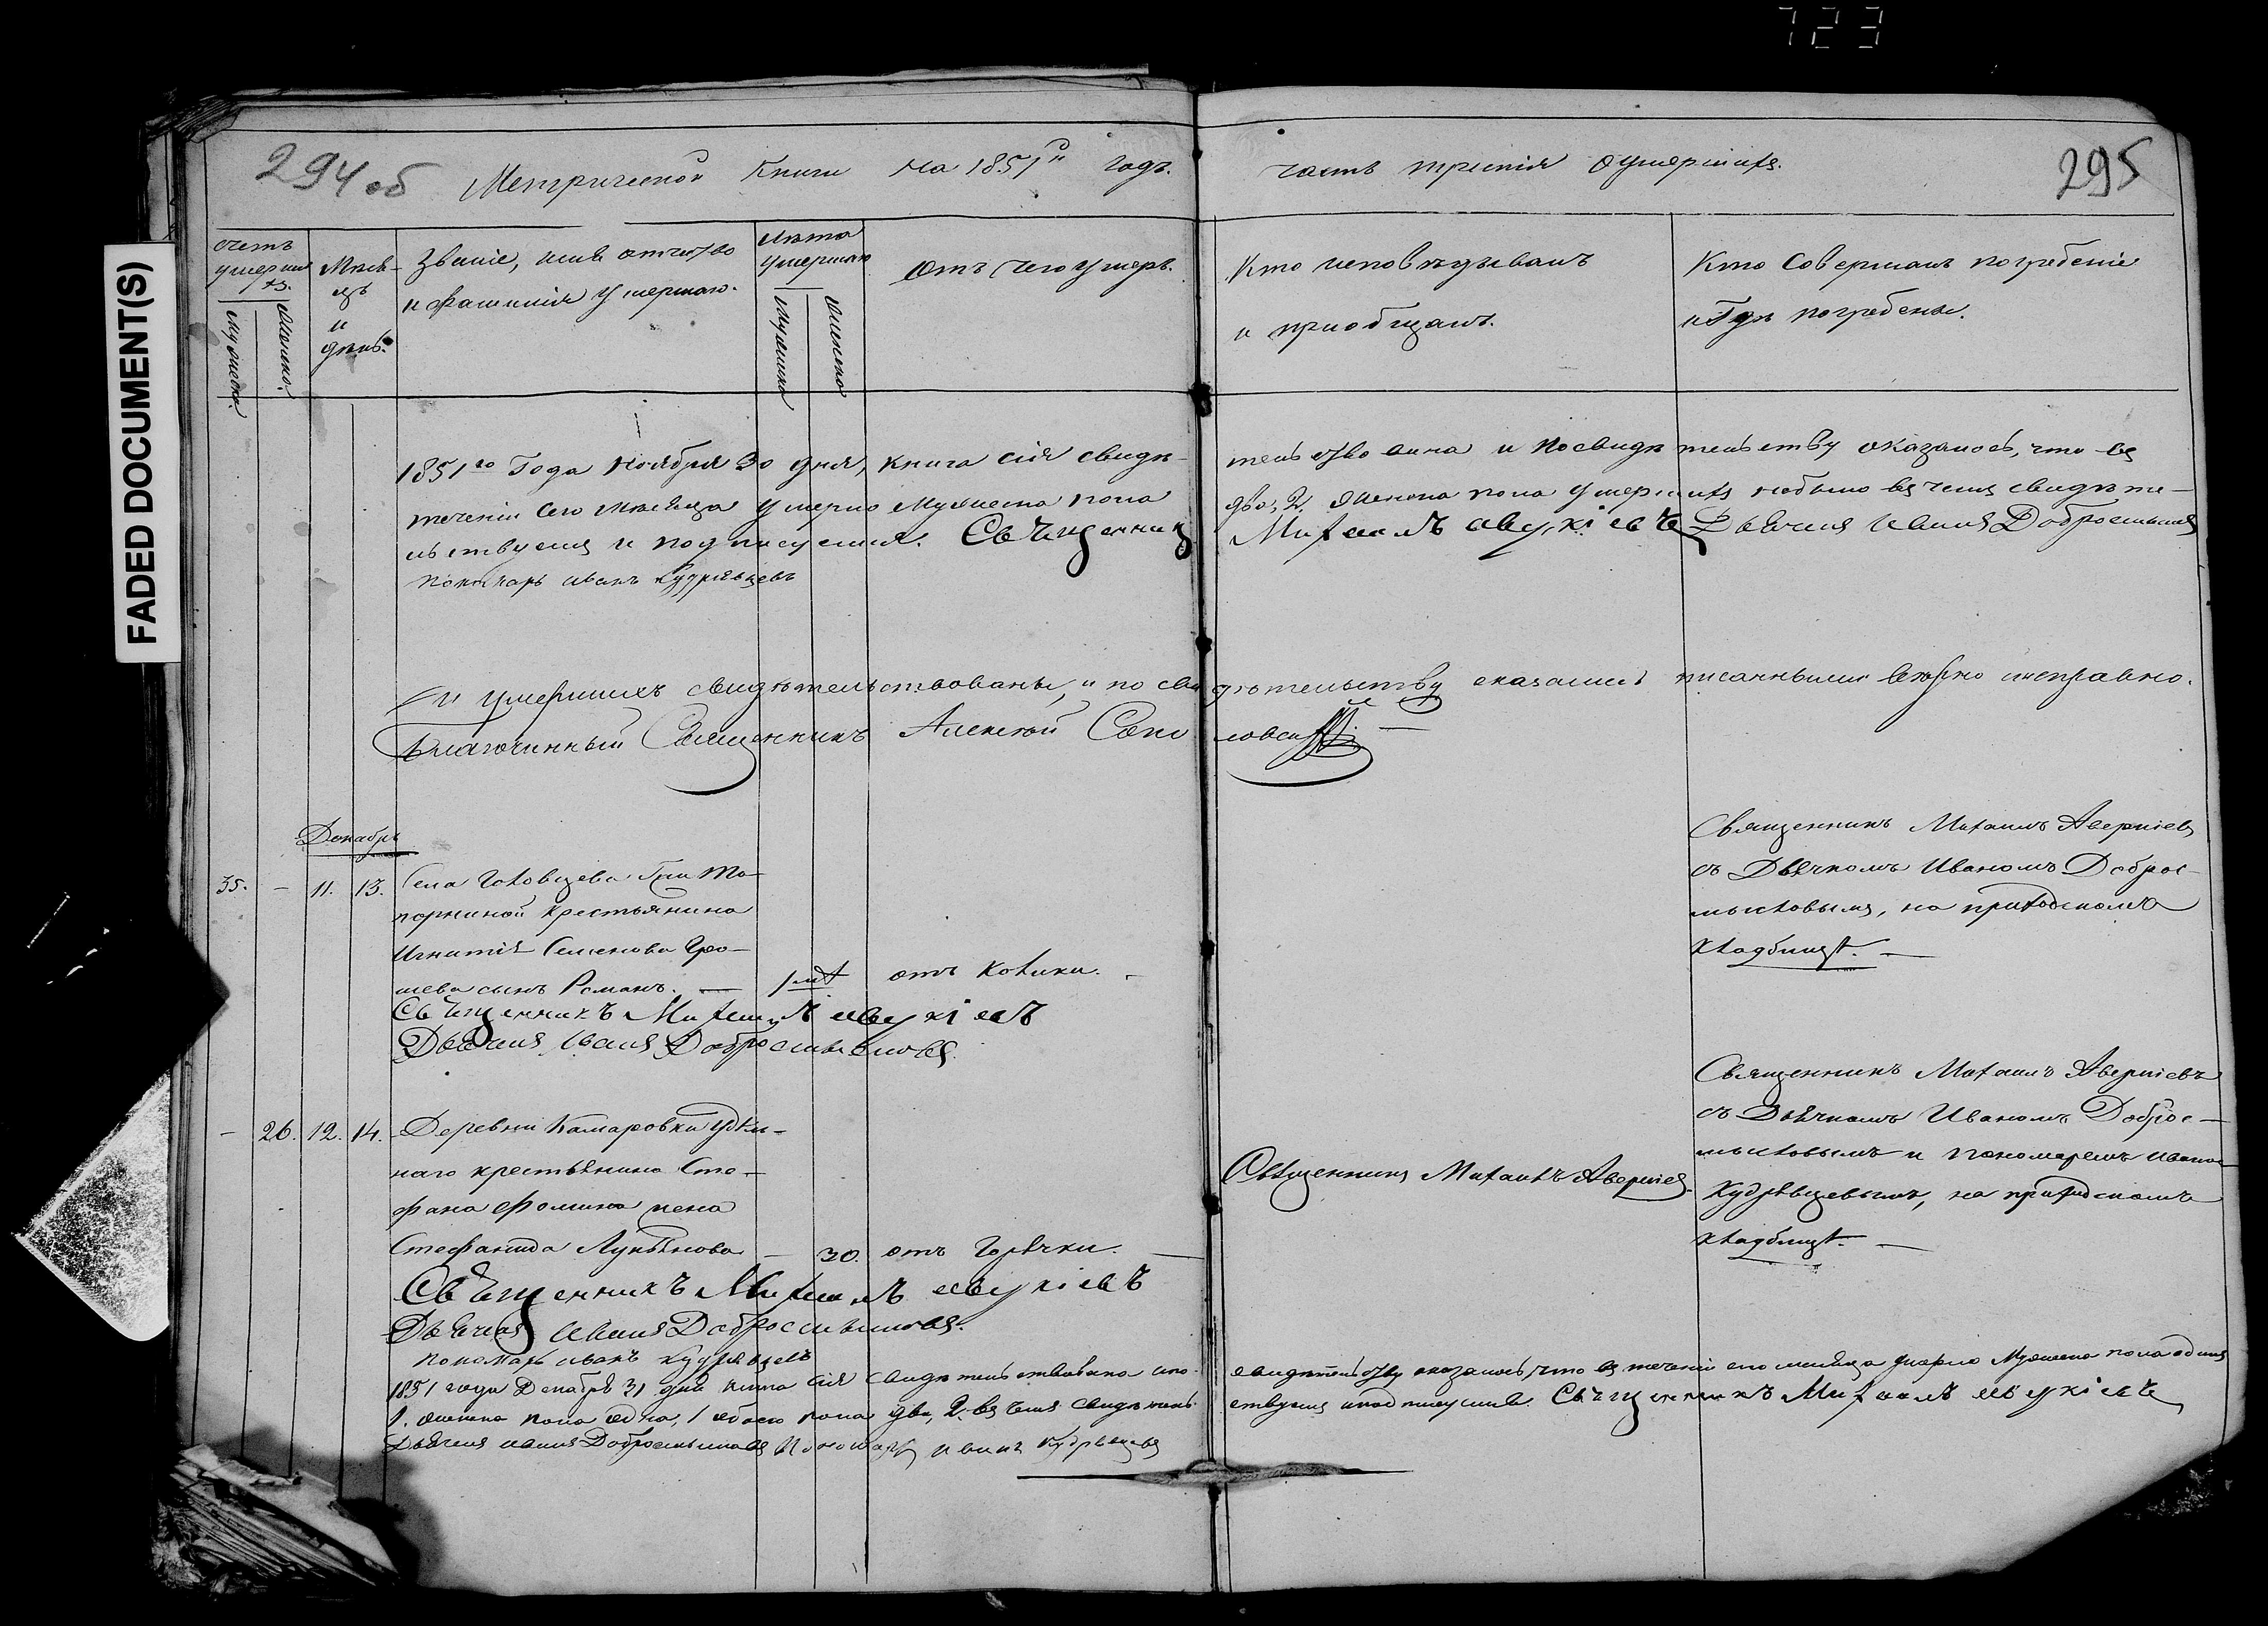 723
FADED DOCUMENT(S)
294 об
Метрической книги на 1851й годъ.
часть третія о умершихъ.
295
Счетъ умершихъ.
Мужеска.
Женско.
Мѣсяцъ и день.
Званіе, имя отчество
и фамилія умершаго.
Лѣта умершаго
Мужеско
Женско
Отъ чего умеръ.
Кто исповѣдывалъ
и пріобщалъ.
Кто совершалъ погребеніе
и гдѣ погребены.
1851го года Ноября 30 дня, книга сія свидѣ-
тельствована и по свидѣтельству оказалось, что въ
теченіи сего мѣсяца умерло мужеска пола
два, 2. женска пола умершихъ небыло въ чемъ свидѣте-
льствуемъ и подписуемся. Священникъ
Михаилъ Аверкіевъ Дьячекъ Иванъ Добросмысловъ
Пономарь Иванъ Кудрявцевъ
и умершихъ свидѣтельствованы, и по свидѣтельству оказались писанными вѣрно исправно.
Благочинный Священникъ Алексѣй Соколовскій
Декабрь
35. — 11. 13. Села Головцева Гжи То-
порниной крестьянина
Игнатія Семенова Гро-
шева сынъ Романъ. — отъ Колики. —
Священникъ Михаилъ Аверкіевъ
Дьячекъ Иванъ Добросмысловъ.
Священникъ Михаилъ Аверкіевъ
съ Дьячкомъ Иваномъ Доброс-
мысловымъ, на приходскомъ
кладбищѣ. —
— 26. 12. 14. Деревни Камаровки удѣль-
наго крестьянина Сте-
фана Фомина жена
Стефанида Лукьянова — 30. отъ Горячки. —
Священникъ Михаилъ Аверкіевъ
Дьячекъ Иванъ Добросмысловъ.
Пономарь Иванъ Кудрявцевъ
Священникъ Михаилъ Аверкіевъ.
Священникъ Михаилъ Аверкіевъ
съ Дьячкомъ Иваномъ Доброс-
мысловымъ и Пономаремъ Иваномъ
Кудрявцевымъ, на приходскомъ
кладбищѣ. —
1851 года Декабря 31 дня книга сія свидѣтельствована и по
свидѣтельству оказалось, что въ теченіи сего мѣсяца умерло мужеска пола одинъ
1. женска пола одна, 1 обоего пола два, 2. въ чемъ свидѣтель-
ствуемъ и подписуемся. Священникъ Михаилъ Аверкіевъ
Дьячекъ Иванъ Добросмысловъ Пономарь Иванъ Кудрявцевъ